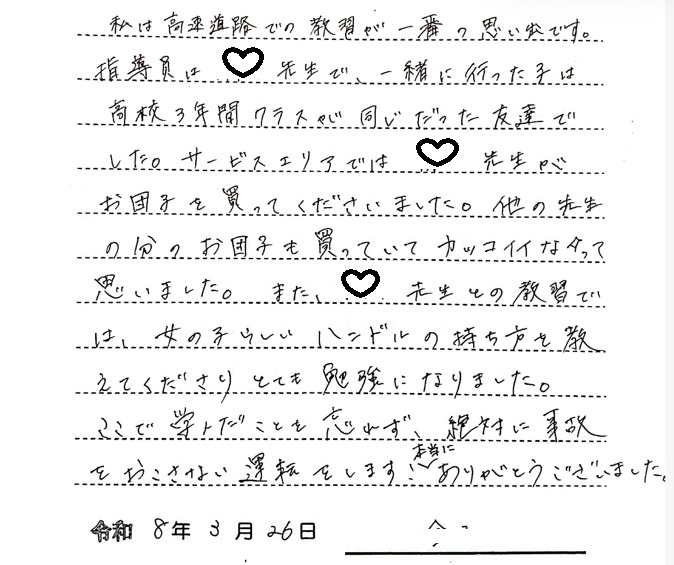 私は高速道路での教習が一番の思い出です。
指導員は 先生で、一緒に行った子は
高校3年間クラスが同じだった友達で
した。サービスエリアでは 先生が
お団子を買ってくださいました。他の先生
の分のお団子も買っていてカッコイイなぁって
思いました。また、 先生との教習で
は、女の子らしいハンドルの持ち方を教
えてくださりとても勉強になりました。
ここで学んだことを忘れず、絶対に事故
をおこさない運転をします!本当にありがとうございました。
令和 8年 3月 26日